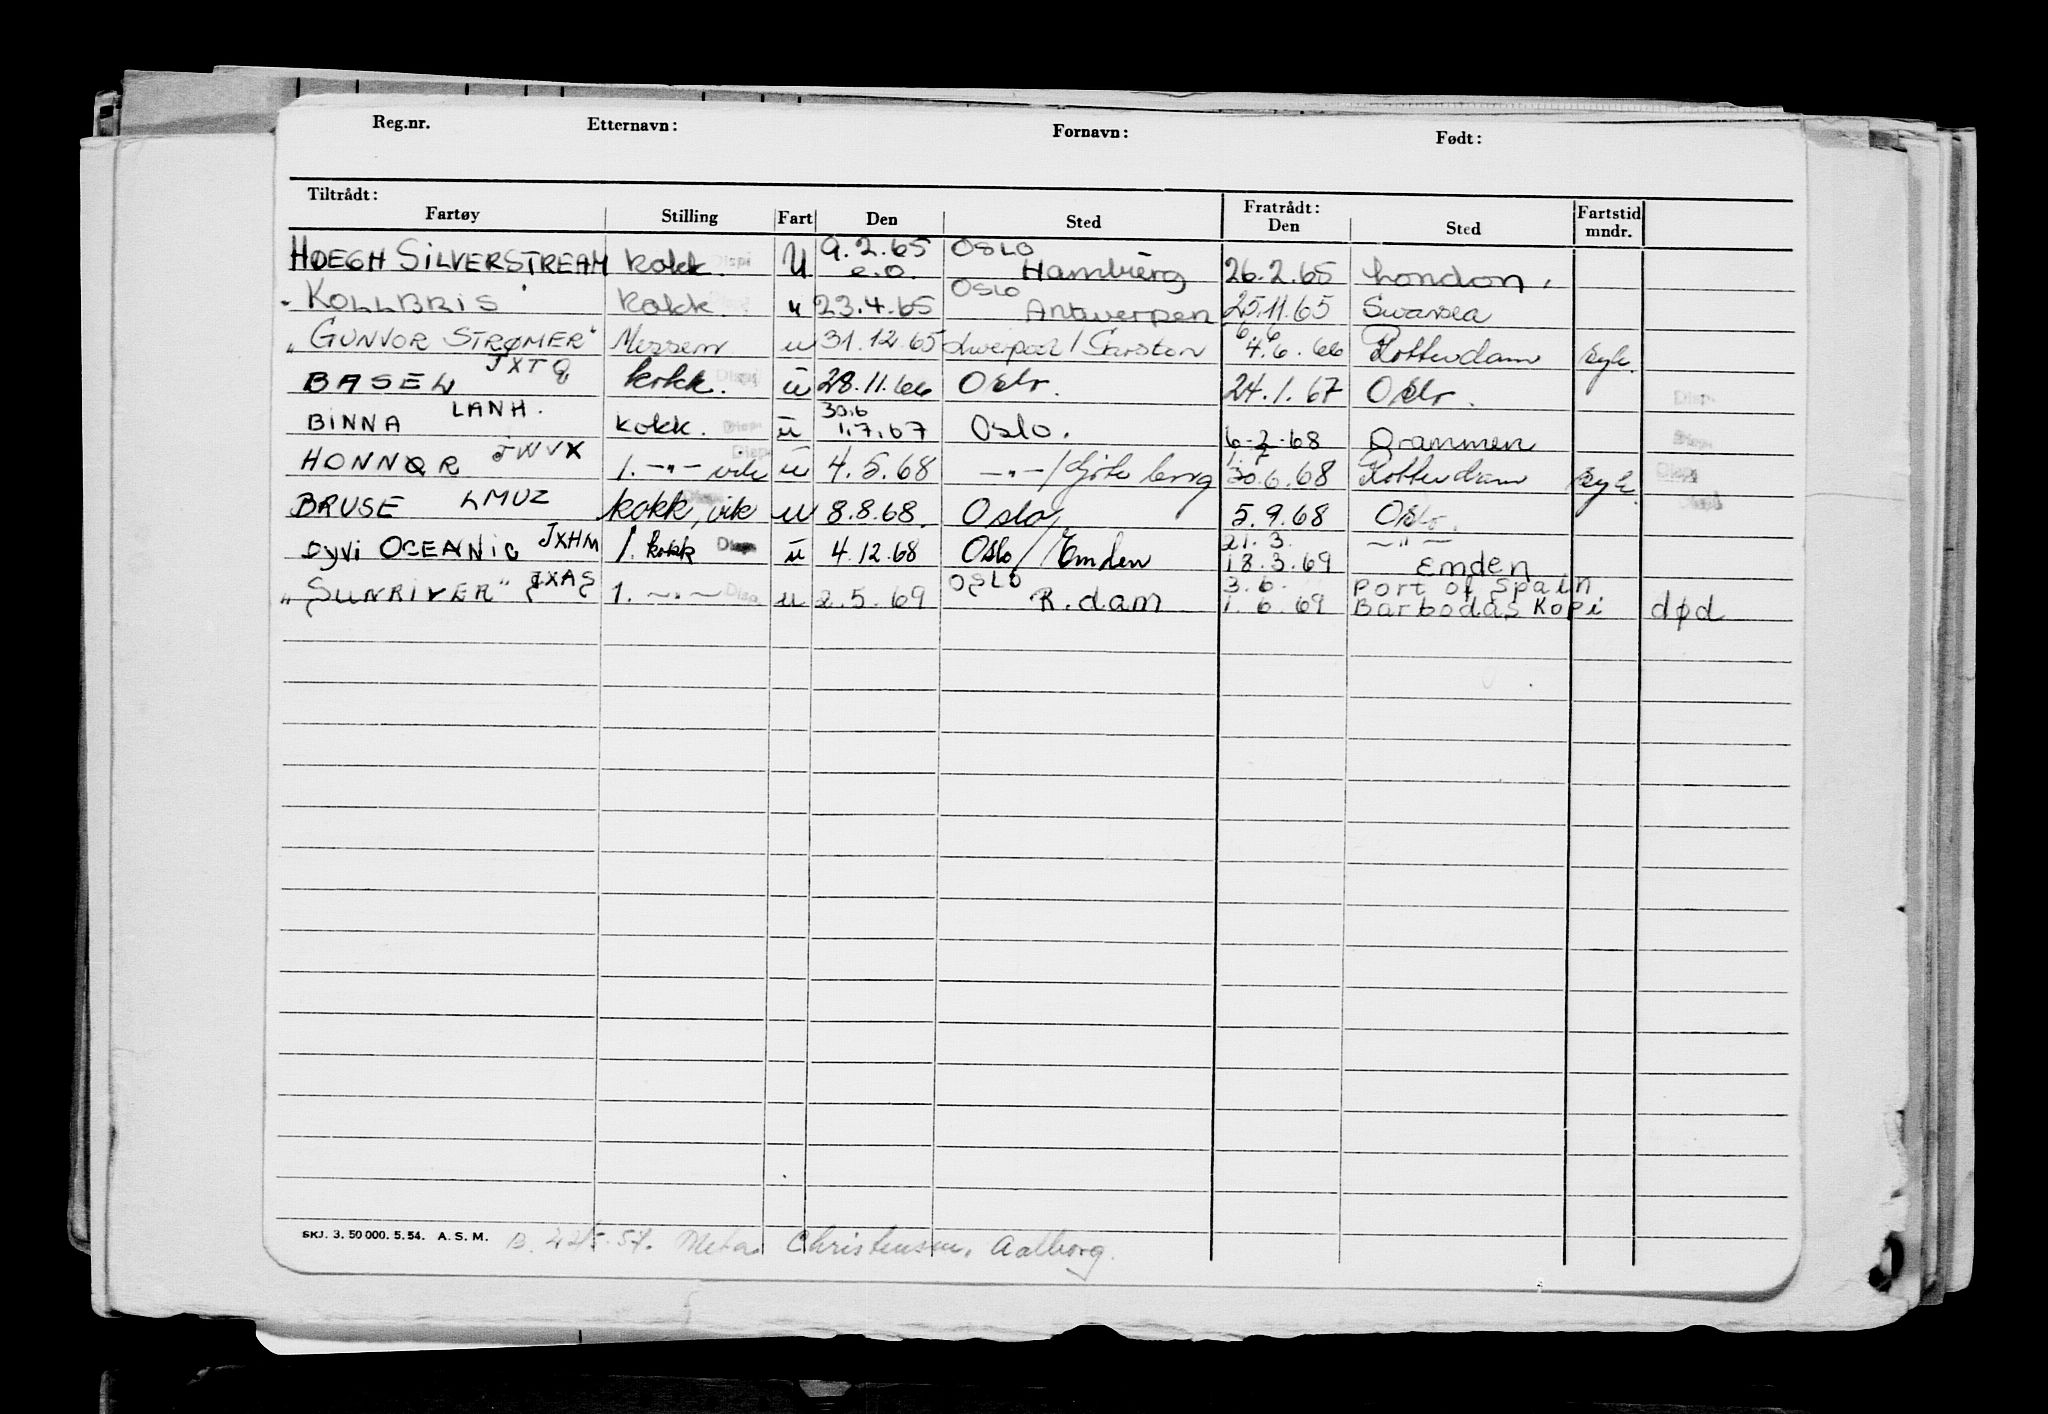 Reg.nr. Etternavn: Fornavn: Født:
Tiltrådt: Fratrådt:
Fartøy Stilling Fart Den Sted Den Sted Fartstid mndr.
HOEGH SILVERSTREAM kokk. Dispi U 9.2.65 e.o. OSLO Hamburg 26.2.65 London.
KOLLBRIS kokk u 23.4.65 OSLO Antwerpen 25.11.65 Swansea
"GUNVOR STRØMER" Messem u 31.12.65 Liverpool / Garston 6/6 4.6.66 Rotterdam syk.
BASEN JXTQ kokk. Dispi u 28.11.66 Oslo. 24.1.67 Oslo. Disp.
BINNA LANH. kokk. Dispi u 30.6 1.7.67 Oslo. 6.2.68 Drammen Disp.
HONNØR JWVX 1. -"- vik Dispi u 4.5.68 -"- / Göteborg 1.7 30.6.68 Rotterdam syk. Disp.
BRUSE LMUZ kokk, vik u 8.8.68. Oslo. 5.9.68 Oslo.
DYVI OCEANIC JXHM 1. kokk Disp. u 4.12.68 Oslo / Emden 21.3. 18.3.69 -"- Emden
"SUNRIVER" JXAS 1. -"- Disp. u 2.5.69 OSLO R.dam 3.6. 1.6.69 Port of Spain Barbodas Kopi død
SKJ. 3. 50 000. 5. 54. A. S. M. Meta Christensen, Aalborg.